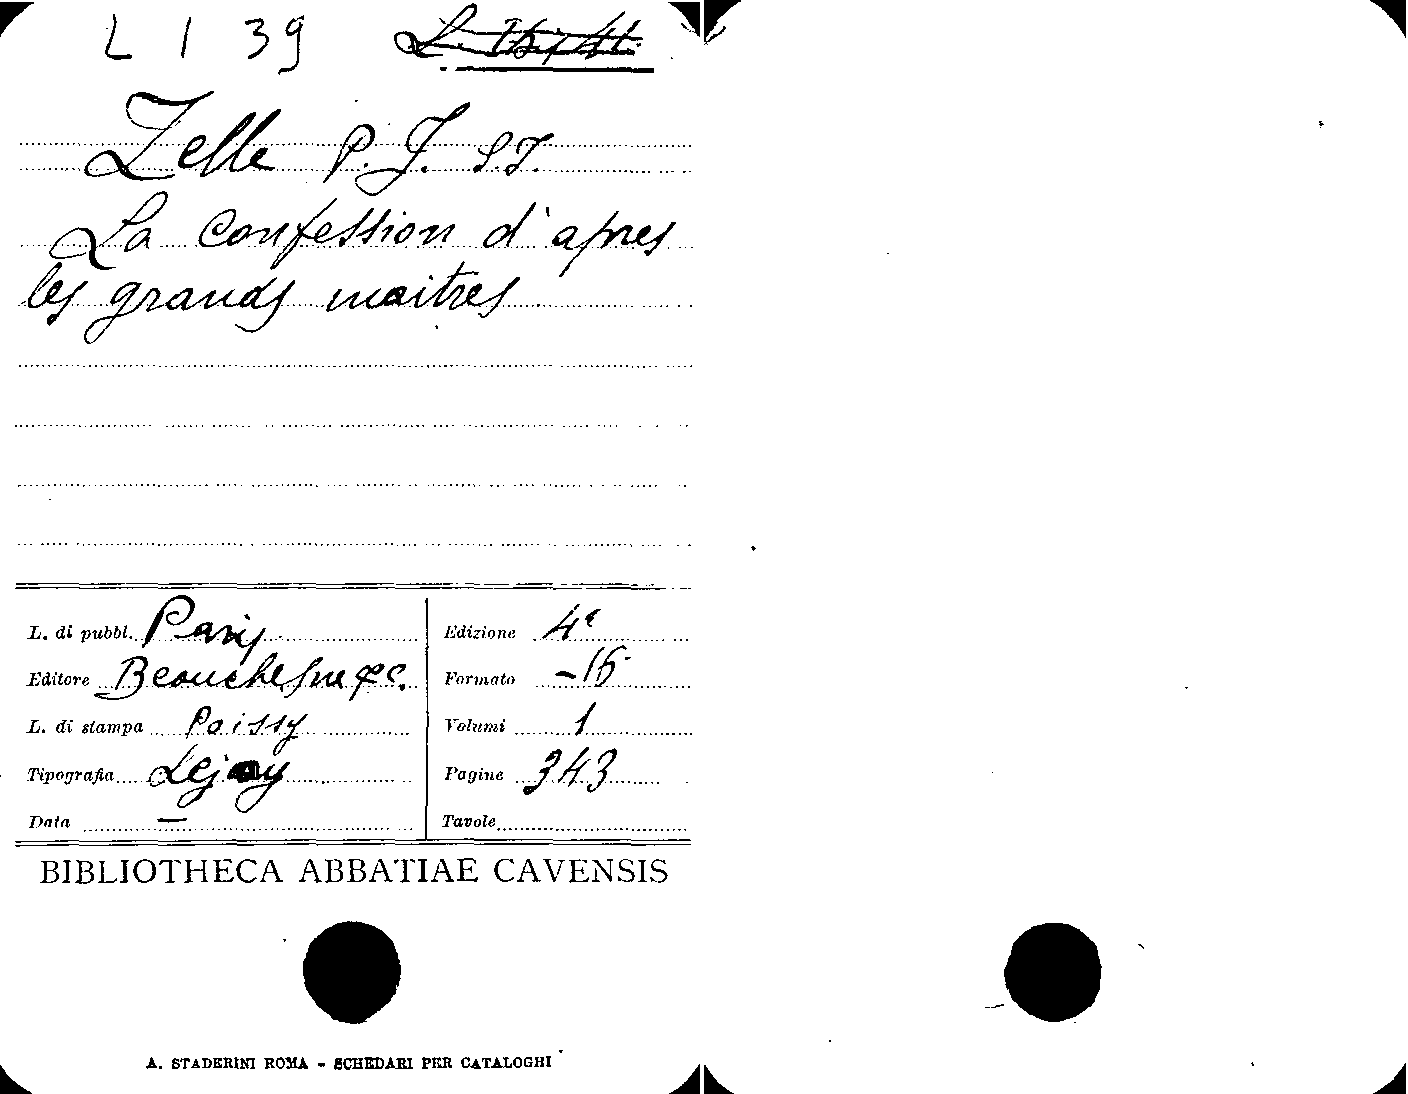 L 1 39
Zelle P. J. S.J.
La confession d'apres
les grands maitres
L. di pubbl. Paris
Edizione 4e
Editore Beauchesne & C.
Formato -16
L. di stampa Poissy
Volumi 1
Tipografia Lejay
Pagine 343
Data —
Tavole
BIBLIOTHECA ABBATIAE CAVENSIS
A. STADERINI ROMA - SCHEDARI PER CATALOGHI